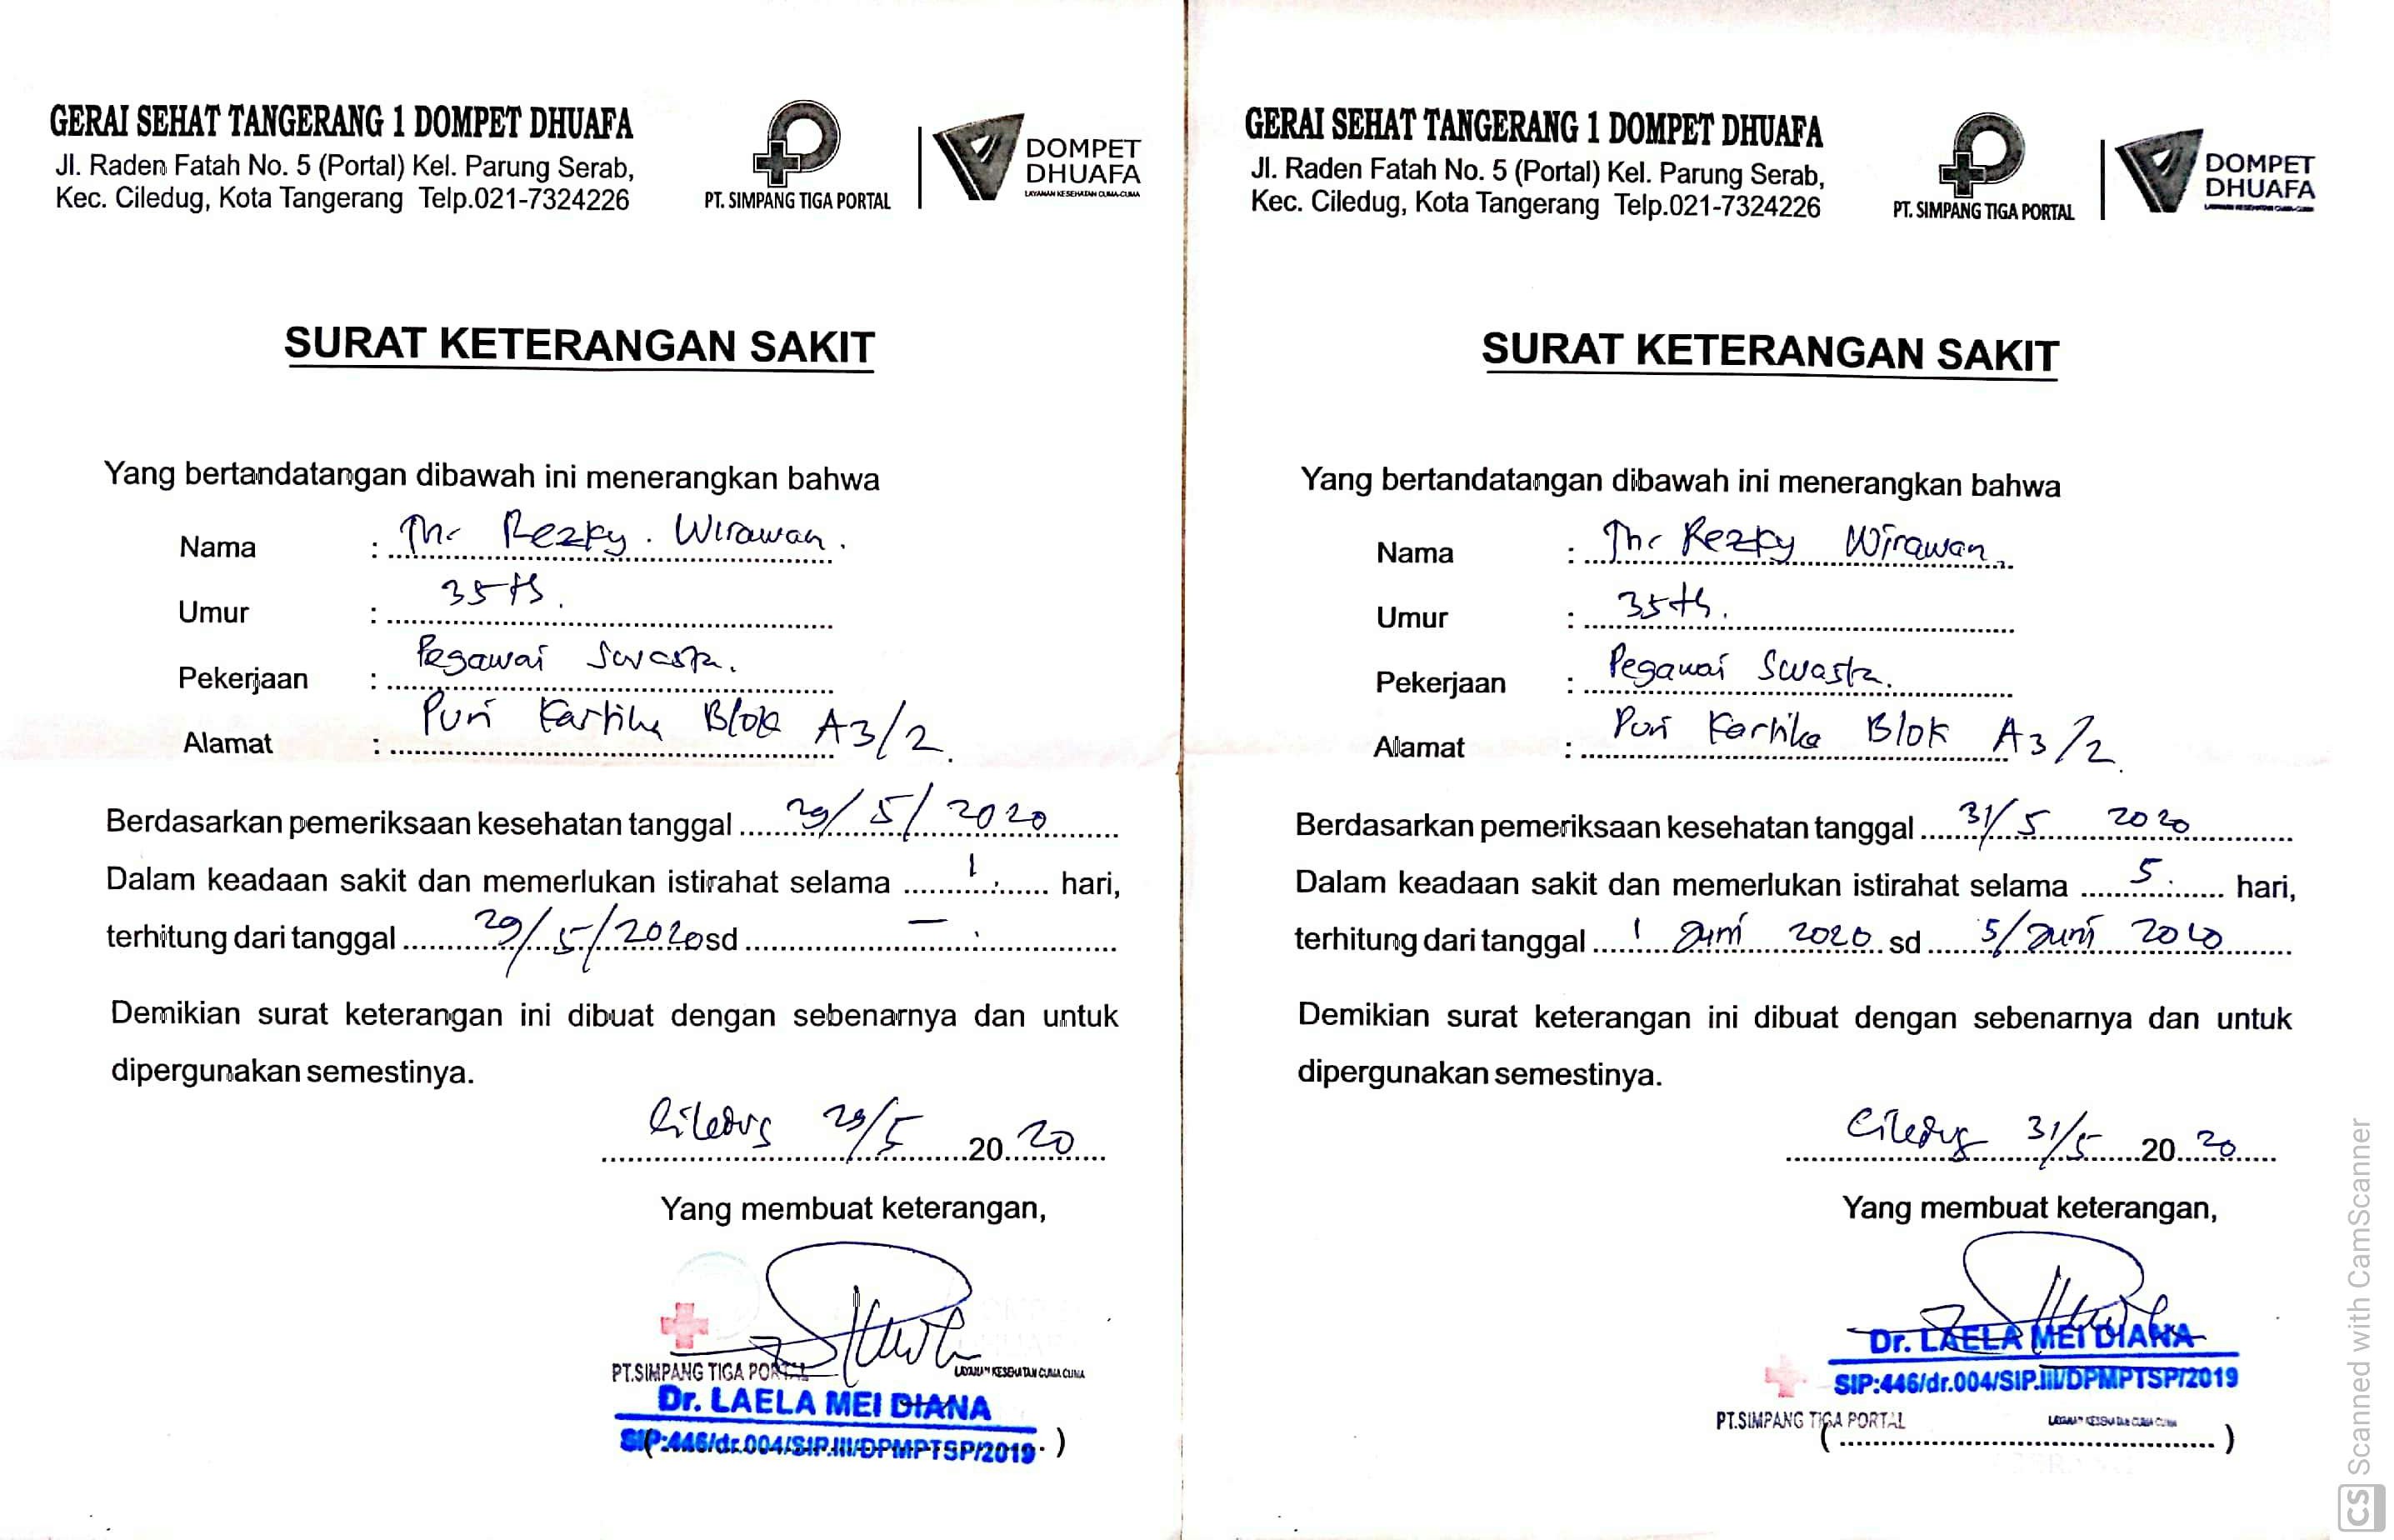 GERAI SEHAT TANGERANG 1 DOMPET DHUAFA
Jl. Raden Fatah No. 5 (Portal) Kel. Parung Serab,
Kec. Ciledug, Kota Tangerang Telp.021-7324226
PT. SIMPANG TIGA PORTAL
DOMPET
DHUAFA
LAYANAN KESEHATAN CUMA-CUMA
SURAT KETERANGAN SAKIT
Yang bertandatangan dibawah ini menerangkan bahwa
Nama : Rezky. Wirawan.
Umur : 35 th.
Pekerjaan : Pegawai Swasta.
Alamat : Puri Kartika Blok A3/2.
Berdasarkan pemeriksaan kesehatan tanggal 29/5/2020
Dalam keadaan sakit dan memerlukan istirahat selama 1 hari,
terhitung dari tanggal 29/5/2020 sd -
Demikian surat keterangan ini dibuat dengan sebenarnya dan untuk
dipergunakan semestinya.
Ciledug 29/5 2020
Yang membuat keterangan,
PT.SIMPANG TIGA PORTAL
LAYANAN KESEHATAN CUMA CUMA
Dr. LAELA MEI DIANA
SIP:446/dr.004/SIP.III/DPMPTSP/2019
( )
GERAI SEHAT TANGERANG 1 DOMPET DHUAFA
Jl. Raden Fatah No. 5 (Portal) Kel. Parung Serab,
Kec. Ciledug, Kota Tangerang Telp.021-7324226
PT. SIMPANG TIGA PORTAL
DOMPET
DHUAFA
LAYANAN KESEHATAN CUMA-CUMA
SURAT KETERANGAN SAKIT
Yang bertandatangan dibawah ini menerangkan bahwa
Nama : Rezky Wirawan.
Umur : 35 th.
Pekerjaan : Pegawai Swasta.
Alamat : Puri Kartika Blok A3/2.
Berdasarkan pemeriksaan kesehatan tanggal 31/5 2020
Dalam keadaan sakit dan memerlukan istirahat selama 5 hari,
terhitung dari tanggal 1 Juni 2020 sd 5/Juni 2020
Demikian surat keterangan ini dibuat dengan sebenarnya dan untuk
dipergunakan semestinya.
Ciledug 31/5 2020
Yang membuat keterangan,
Dr. LAELA MEI DIANA
SIP:446/dr.004/SIP.III/DPMPTSP/2019
PT.SIMPANG TIGA PORTAL
LAYANAN KESEHATAN CUMA CUMA
( )
CS Scanned with CamScanner